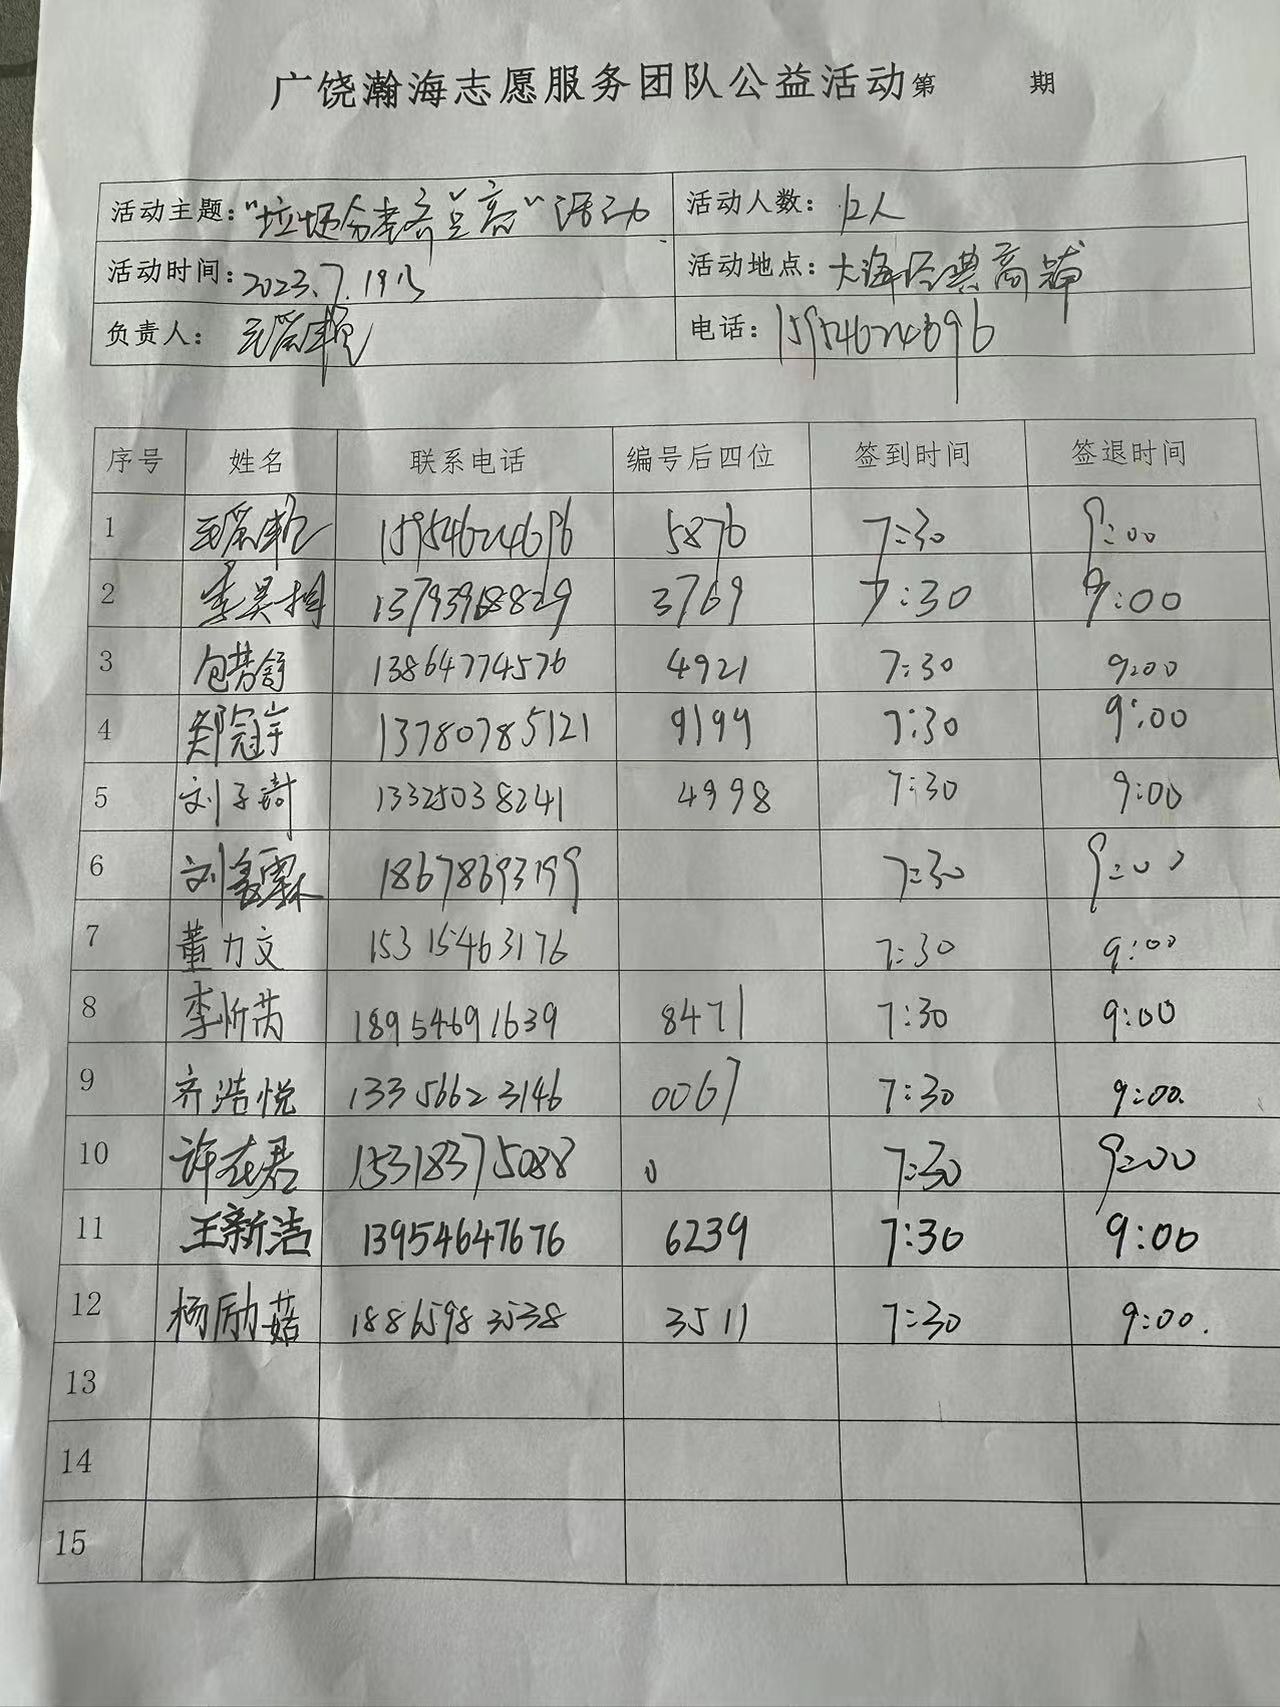 广饶瀚海志愿服务团队公益活动第 期
活动主题：“垃圾分类齐” 活动 活动人数：12人
活动时间：2023.7.19 活动地点：大海经典商铺
负责人： 电话：15954624696
序号 姓名 联系电话 编号后四位 签到时间 签退时间
1 15954624696 5876 7:30 9:00
2 李昊 13793968829 3769 7:30 9:00
3 包梦舒 13864774576 4921 7:30 9:00
4 郑冠宇 13780785121 9199 7:30 9:00
5 刘子琦 13325038241 4998 7:30 9:00
6 刘霖 18678693199 7:30 9:00
7 董力文 15315463176 7:30 9:00
8 李忻芮 18954691639 8471 7:30 9:00
9 齐浩悦 13356623146 0067 7:30 9:00.
10 许在君 15318375088 0 7:30 9:00
11 王新洁 13954647676 6239 7:30 9:00
12 杨励菇 18865983538 3511 7:30 9:00.
13
14
15